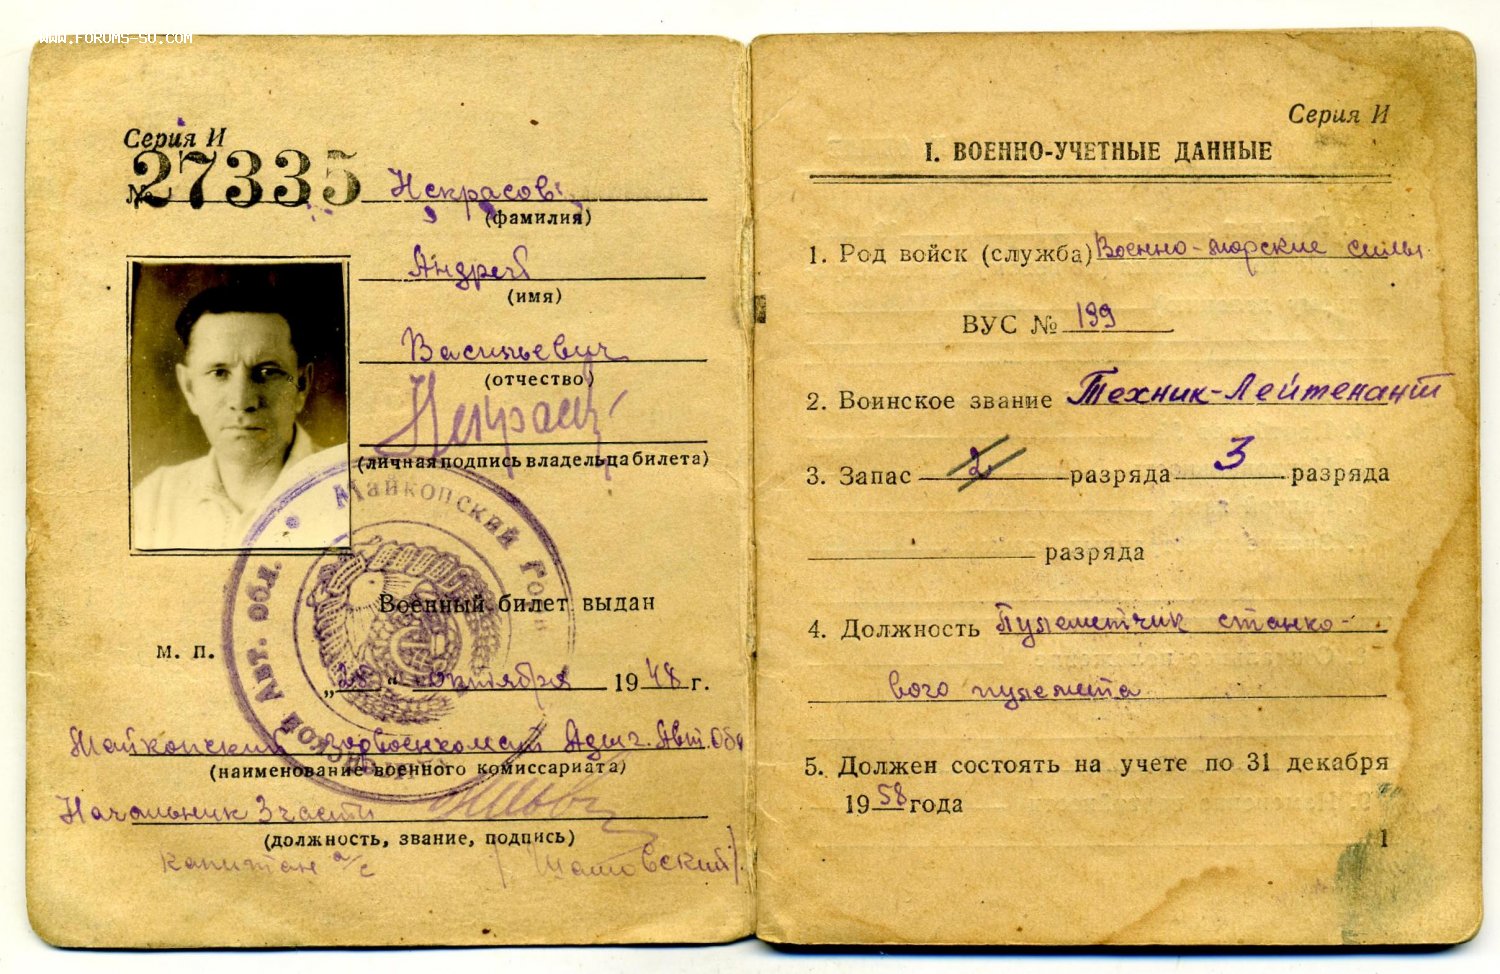 www.FORUMS-SU.COM
Серия И
№ 27335
Некрасов
(фамилия)
Андрей
(имя)
Васильевич
(отчество)
(личная подпись владельца билета)
Майкопский Гор
Авт. Обл.
Военный билет выдан
М. П.
„28" октября 1948 г.
Майкопский Горвоенкомат Адыг. Авт. Обл
(наименование военного комиссариата)
Начальник 3 части
(должность, звание, подпись)
капитан а/с
Серия И
I. ВОЕННО-УЧЕТНЫЕ ДАННЫЕ
1. Род войск (служба) Военно-морские силы
ВУС № 199
2. Воинское звание Техник-Лейтенант
3. Запас 2 разряда 3 разряда
разряда
4. Должность Пулеметчик станко-
вого пулемета
5. Должен состоять на учете по 31 декабря
1958 года
1